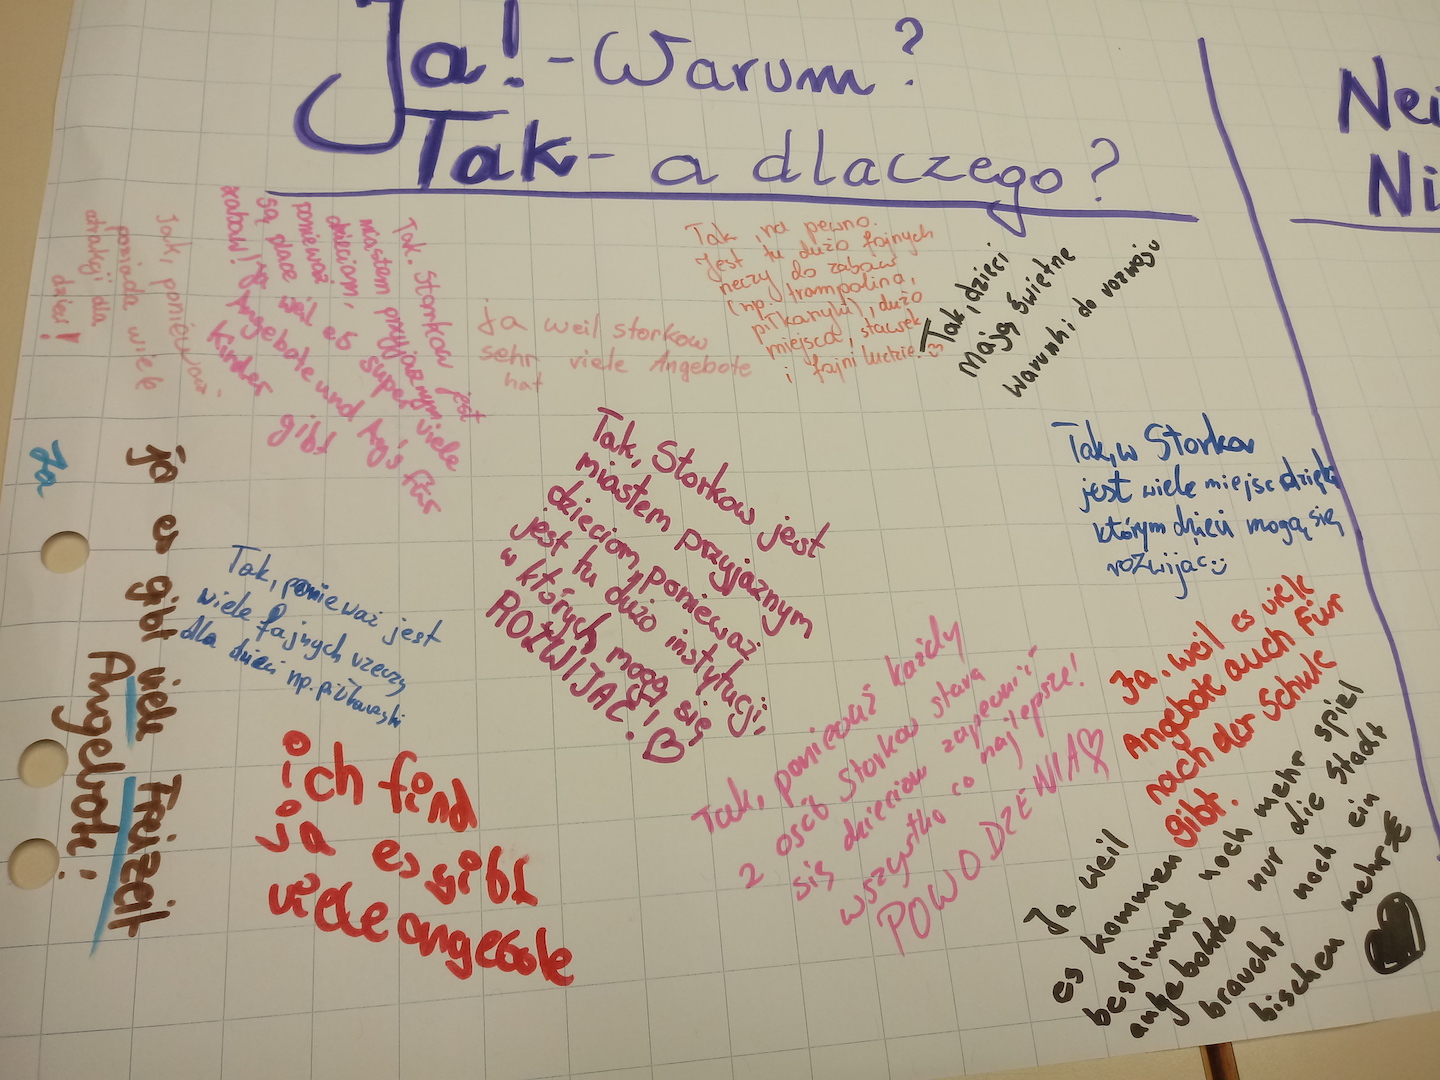 Ja! - Warum?
Tak - a dlaczego?
Nei
Ni
Tak, ponieważ
posiada wiele
atrakcji dla
dzieci!
Tak. Storkow jest
miastem przyjaznym
dzieciom,
ponieważ
są place
zabaw!
weil es super viele
Angebote und Ag's für
Kinder gibt
Ja weil storkow
sehr viele Angebote
hat
Tak na pewno.
Jest tu dużo fajnych
rzeczy do zabaw
(np. trampolina,
piłkarzyki), dużo
miejsca, stawek
i fajni ludzie
Tak, dzieci
mają świetne
warunki do rozwoju
Tak, w Storkow
jest wiele miejsc dzięki
którym dzieci mogą się
rozwijać
Ja
ja es gibt viele Freizeit
Angebote!
Tak, ponieważ jest
wiele fajnych rzeczy
dla dzieci np. piłkarzyki
Tak, Storkow jest
miastem przyjaznym
dzieciom, ponieważ
jest tu dużo instytucji,
w których mogą się
ROZWIJAĆ!
ich find
ja es gibt
viele angebote
Tak, ponieważ każdy
z osób Storkow stara
się dzieciom zapewnić
wszystko co najlepsze!
POWODZENIA
Ja, weil es viele
Angebote auch für
nach der Schule
gibt.
Ja weil
es kommen noch mehr spiel
bestimmt
angebohte nur die Stadt
braucht noch ein
bischen mehr €